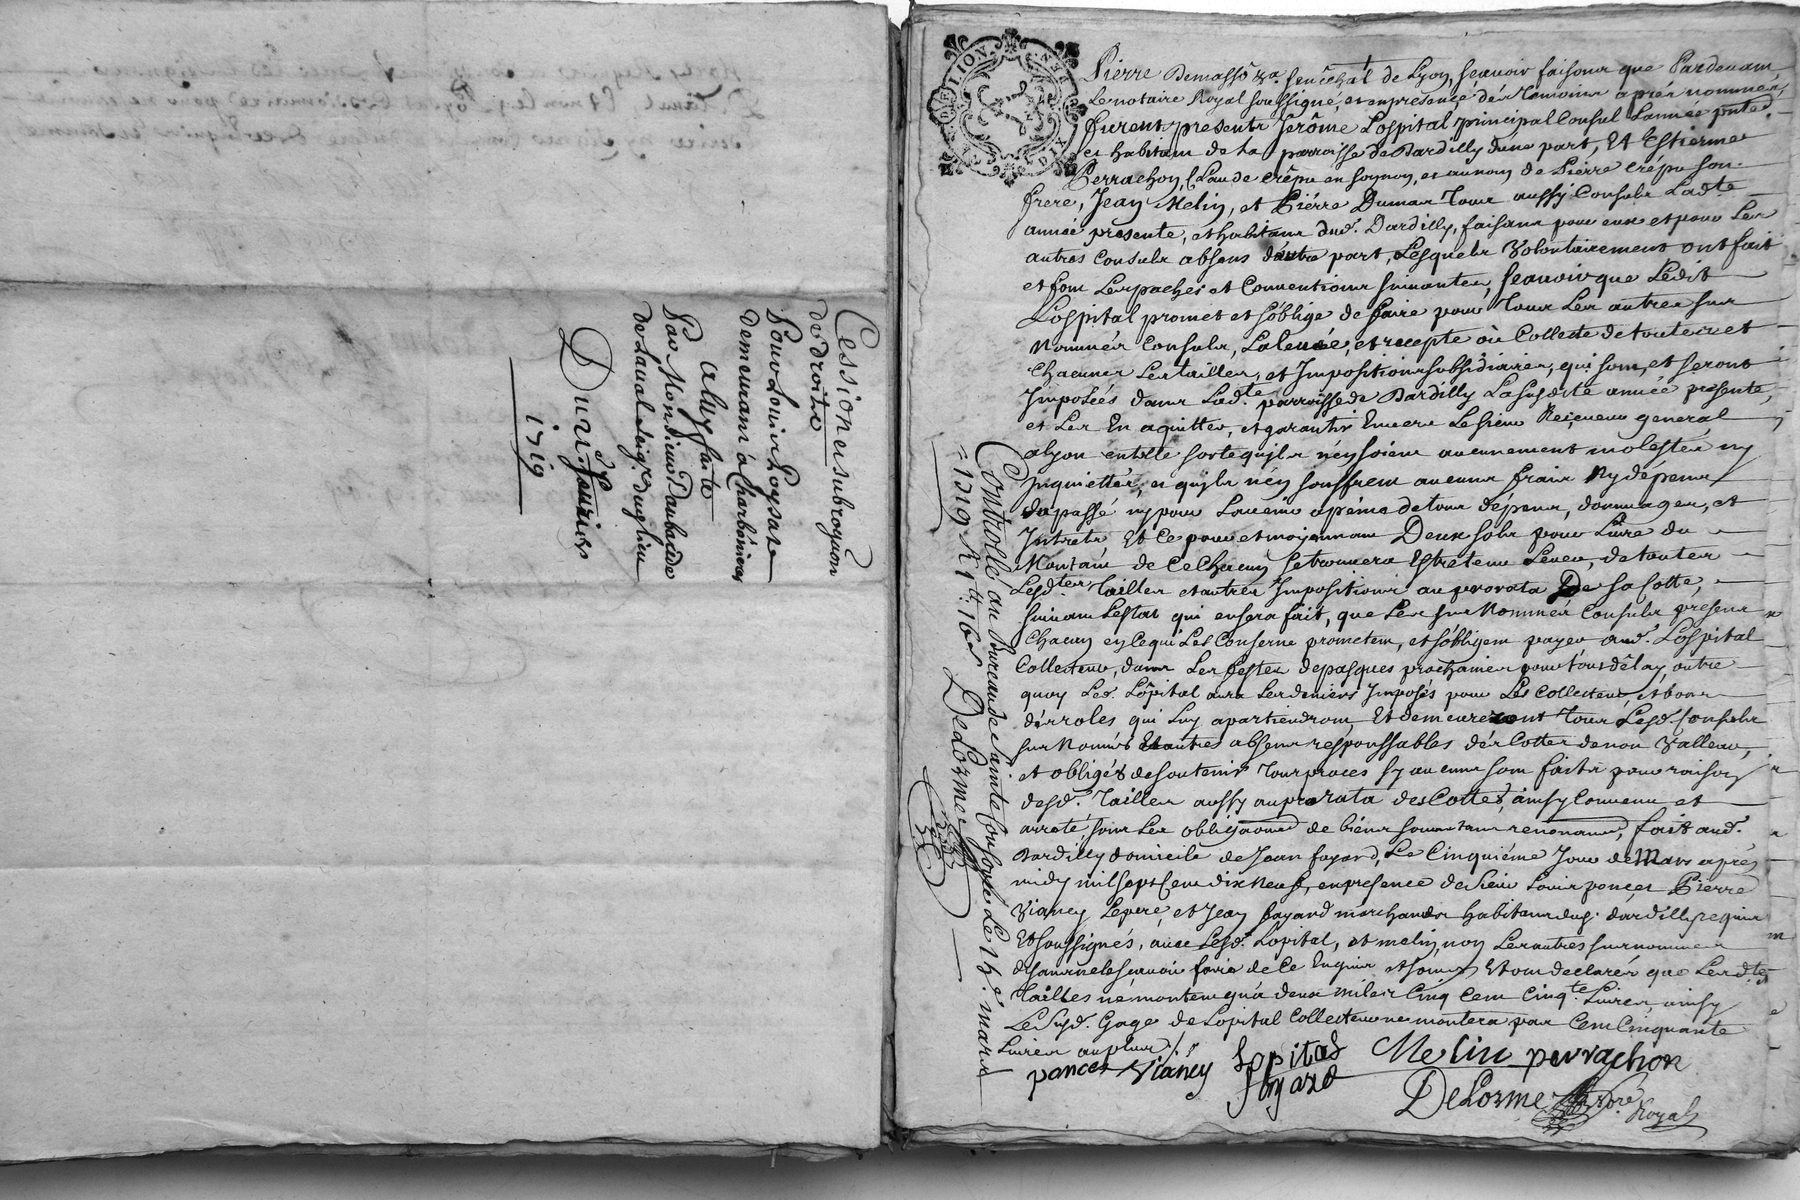 Cession en subrogãon
de droits
Pour Louis Poysat
demeurant à Charbônieres
a luy faite
Par Monsieur Daubarede
de Laval seigr. dud. lieu
Du 2e. fevrier
1719
GEN. DE LION. DIX
Pierre Demasso &a. senêchal de Lyon, scavoir faisons que Pardevant
Le notaire Royal soussigné, et en presence dés Temoins aprés nommés,
furent presents Jerôme Lospital principal Consul Lannée pnte.
et habitant de La parroisse de Dardilly dune part, Et Estienne
Perrachon, Claude Crêpu en son nom, et au nom de Pierre Crépu son
frere, Jean Melin, et Piérre Dumas Tous aussy Consuls Ladte
année presente, et habitans dud. Dardilly, faisans pour eux et pour Les
autres Consuls absens dautre part, Lesquels Volontairement ont fait
et font Les paches et Conventions suivantes, scavoir que Ledit
Lospital promet et s'oblige de faire pour Tous Les autres sus
Nommés Consuls, La levée, et recepte ou Collecte de toutes et
Chacunes Les tailles, et Impositions subsidiaires, qui sont, et seront
Imposées dans Ladte. parroisse de Dardilly La susdite année presente,
et Les En aquitter, et garantir Envers Le sieur Reçeveur general
a Lyon en telle sorte quils n'en soient aucunement molestés ny
Inquiettés, et quils n'en souffrent aucuns frais Ny dépens
du passé ny pour Lavenir a peine de tous dépens, dommages, et
Intrets, Et Ce pour et moyennant Deux sols pour Livre du
Montant de Ce Chacun se trouvera Estre tenu Lever, de toutes
Lesdtes Tailles et autres Impositions au prorata De sa Cotte,
suivant Lestat qui en sera fait, que Les sus Nommés Consuls presens
Chacun en Ce qui Les Conserne promettent, et s'obligent payer aud. Lospital
Collecteur, dans Les festes de pasques prochaines pour tout délay outre
quoy Led. Lôpital aura Les deniers Imposés pour Les Collecteurs, et
dés roles qui Luy apartiendront Et demeureront Tous Lesd. Consuls
sus Nommés Et autres absens résponssables dés Cottes de non Valleur,
et obligés de soutenir Tous proces sy aucuns sont faits pour raison
desd. Tailles aussy au prorata des Cottes, ainsy Convenu et
arreté, sous Les obligaons de biens renonans, fait aud.
Dardilly domicile de Jean fayard, Le Cinquiéme Jour de Mars aprés
midy mil sept Cent dix Neuf, en presence de sieur Louis poncet Pierre
Vianey Le pere, et Jean fayard marchands habitans dud. dardilly requis
Et soussignés, avec Lesd. Lopital, et melin, non Les autres sus nommés
 de Ce Enquis et sommés Et ont declarés que Lesdtes
Tailles ne montent qua deux milcis Cinq Cent Cinqte Livres ainsy
Le susd. Gage de Lopital Collecteur ne montera par Cent Cinquante
Livres au plus
poncet Vianey Lopital Melin perrachon
fayard
DeLorme nore. Royal
Controllé au Bureau de sainte Consorce Le 14e. mars
1719 DeLorme